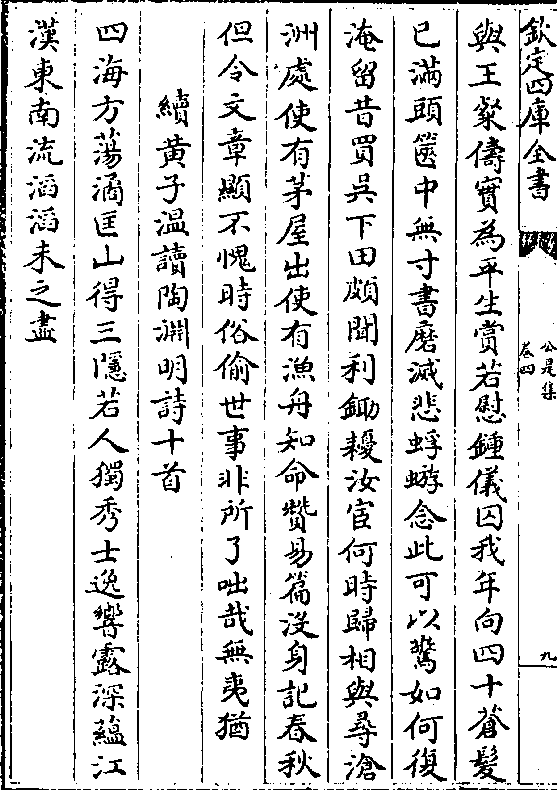 欽定四庫全書
公是集
卷四
九
與王粲儔實為平生賞若慰鍾儀囚我年向四十蒼髮
已滿頭篋中無寸書磨滅悲蜉蝣念此可以驚如何復
淹留昔買吳下田頗聞利鋤耰汝宦何時歸相與尋滄
洲處使有茅屋出使有漁舟知命贊易篇沒身記春秋
但令文章顯不愧時俗偷世事非所了咄哉無夷猶
續黃子溫讀陶淵明詩十首
四海方蕩潏匡山得三隱若人獨秀士逸響露深蘊江
漢東南流滔滔未之盡